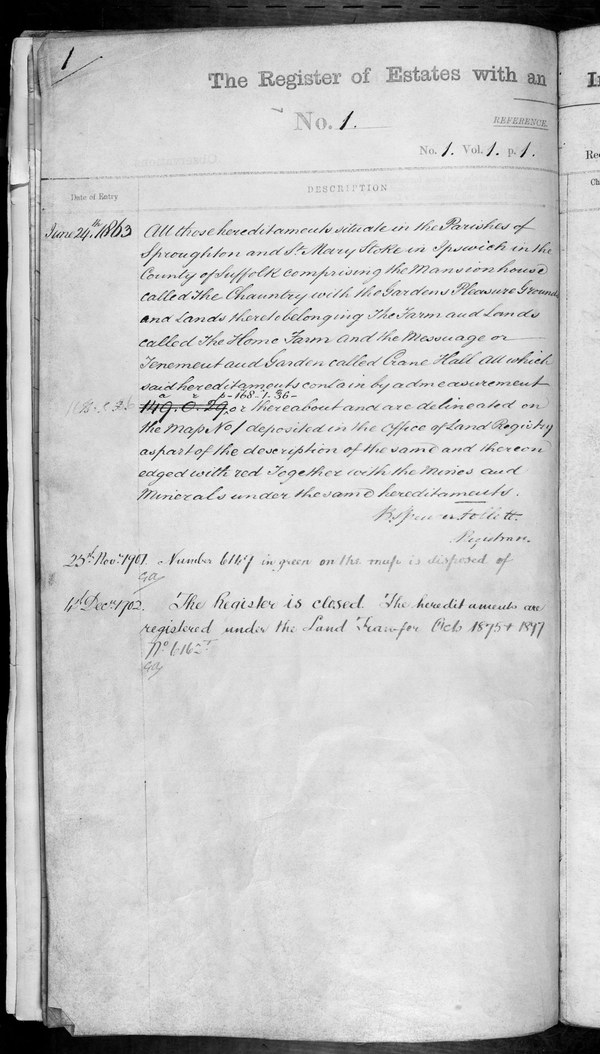 1
The Register of Estates with an
No. 1.
REFERENCE.
No. 1. Vol. 1. p. 1.
Date of Entry
DESCRIPTION
June 24th 1863
All those hereditaments situate in the Parishes of
Sproughton and St. Mary Stoke in Ipswich in the
County of Suffolk comprising the Mansion house
called The Chauntry with the Gardens Pleasure Grounds
and Lands thereto belonging The Farm and Lands
called The Home Farm and the Messuage or
Tenement and Garden called Crane Hall all which
said hereditaments contain by admeasurement
a r p - 168-1-36-
149.0.29. or thereabout and are delineated on
the Map No 1 deposited in the Office of Land Registry
as part of the description of the same and thereon
edged with red Together with the Mines and
Minerals under the same hereditaments.
Follett.
Registrar.
25th Novr. 1901. Number 6147 in green on the map is disposed of
4th Decr. 1902. The Register is closed. The hereditaments are
registered under the Land Transfer Acts 1875 & 1897
No